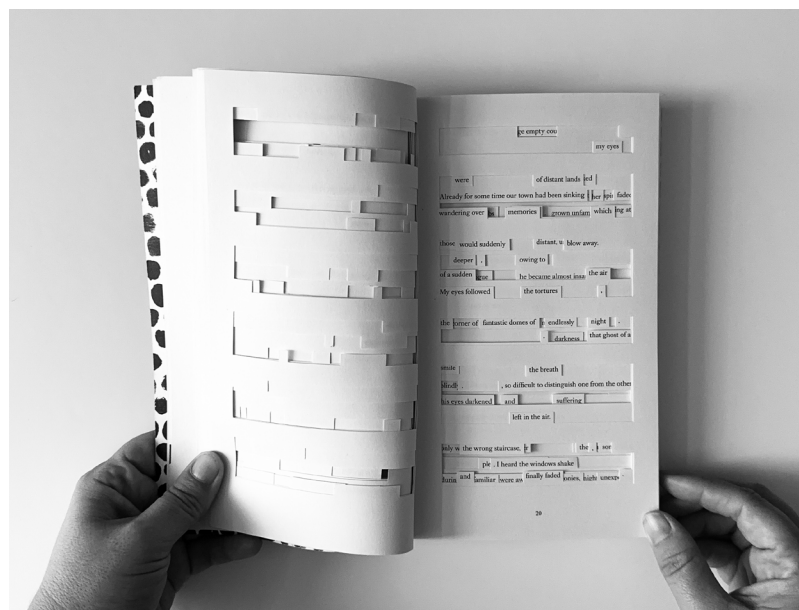 empty
my eyes
were of distant lands
Already for some time our town had been sinking faded
wandering over memories grown which
those would suddenly distant, blow away.
deeper , owing to
of a sudden he became almost the air
My eyes followed the tortures ,
the corner of fantastic domes of endlessly night .
. darkness that ghost of a
the breath
blindly , , so difficult to distinguish one from the other
his eyes darkened and suffering
left in the air.
only the wrong staircase, the ,
. I heard the windows shake
and familiar were finally faded night
20